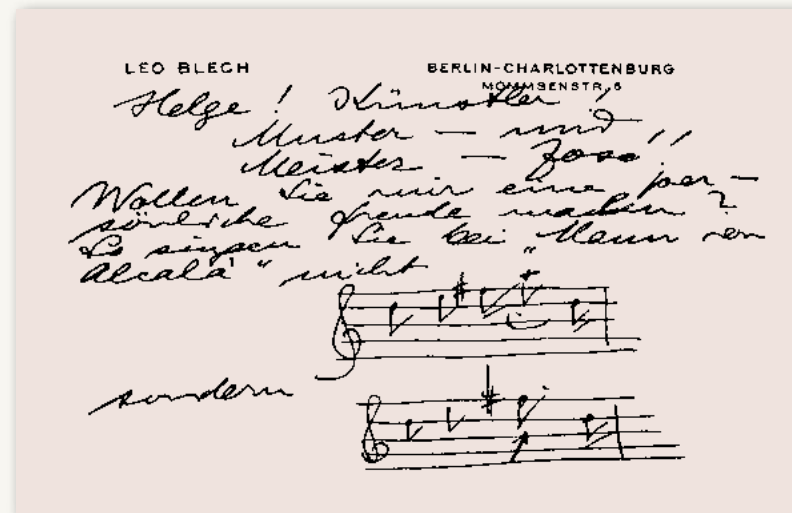 LEO BLECH
BERLIN-CHARLOTTENBURG
MOMMSENSTR. 6
Helge! Künstler!
Muster — und
Meister —
Wollen Sie mir eine per-
sönliche Freude machen?
So singen Sie bei „Mann von
Alcalá“ nicht
sondern